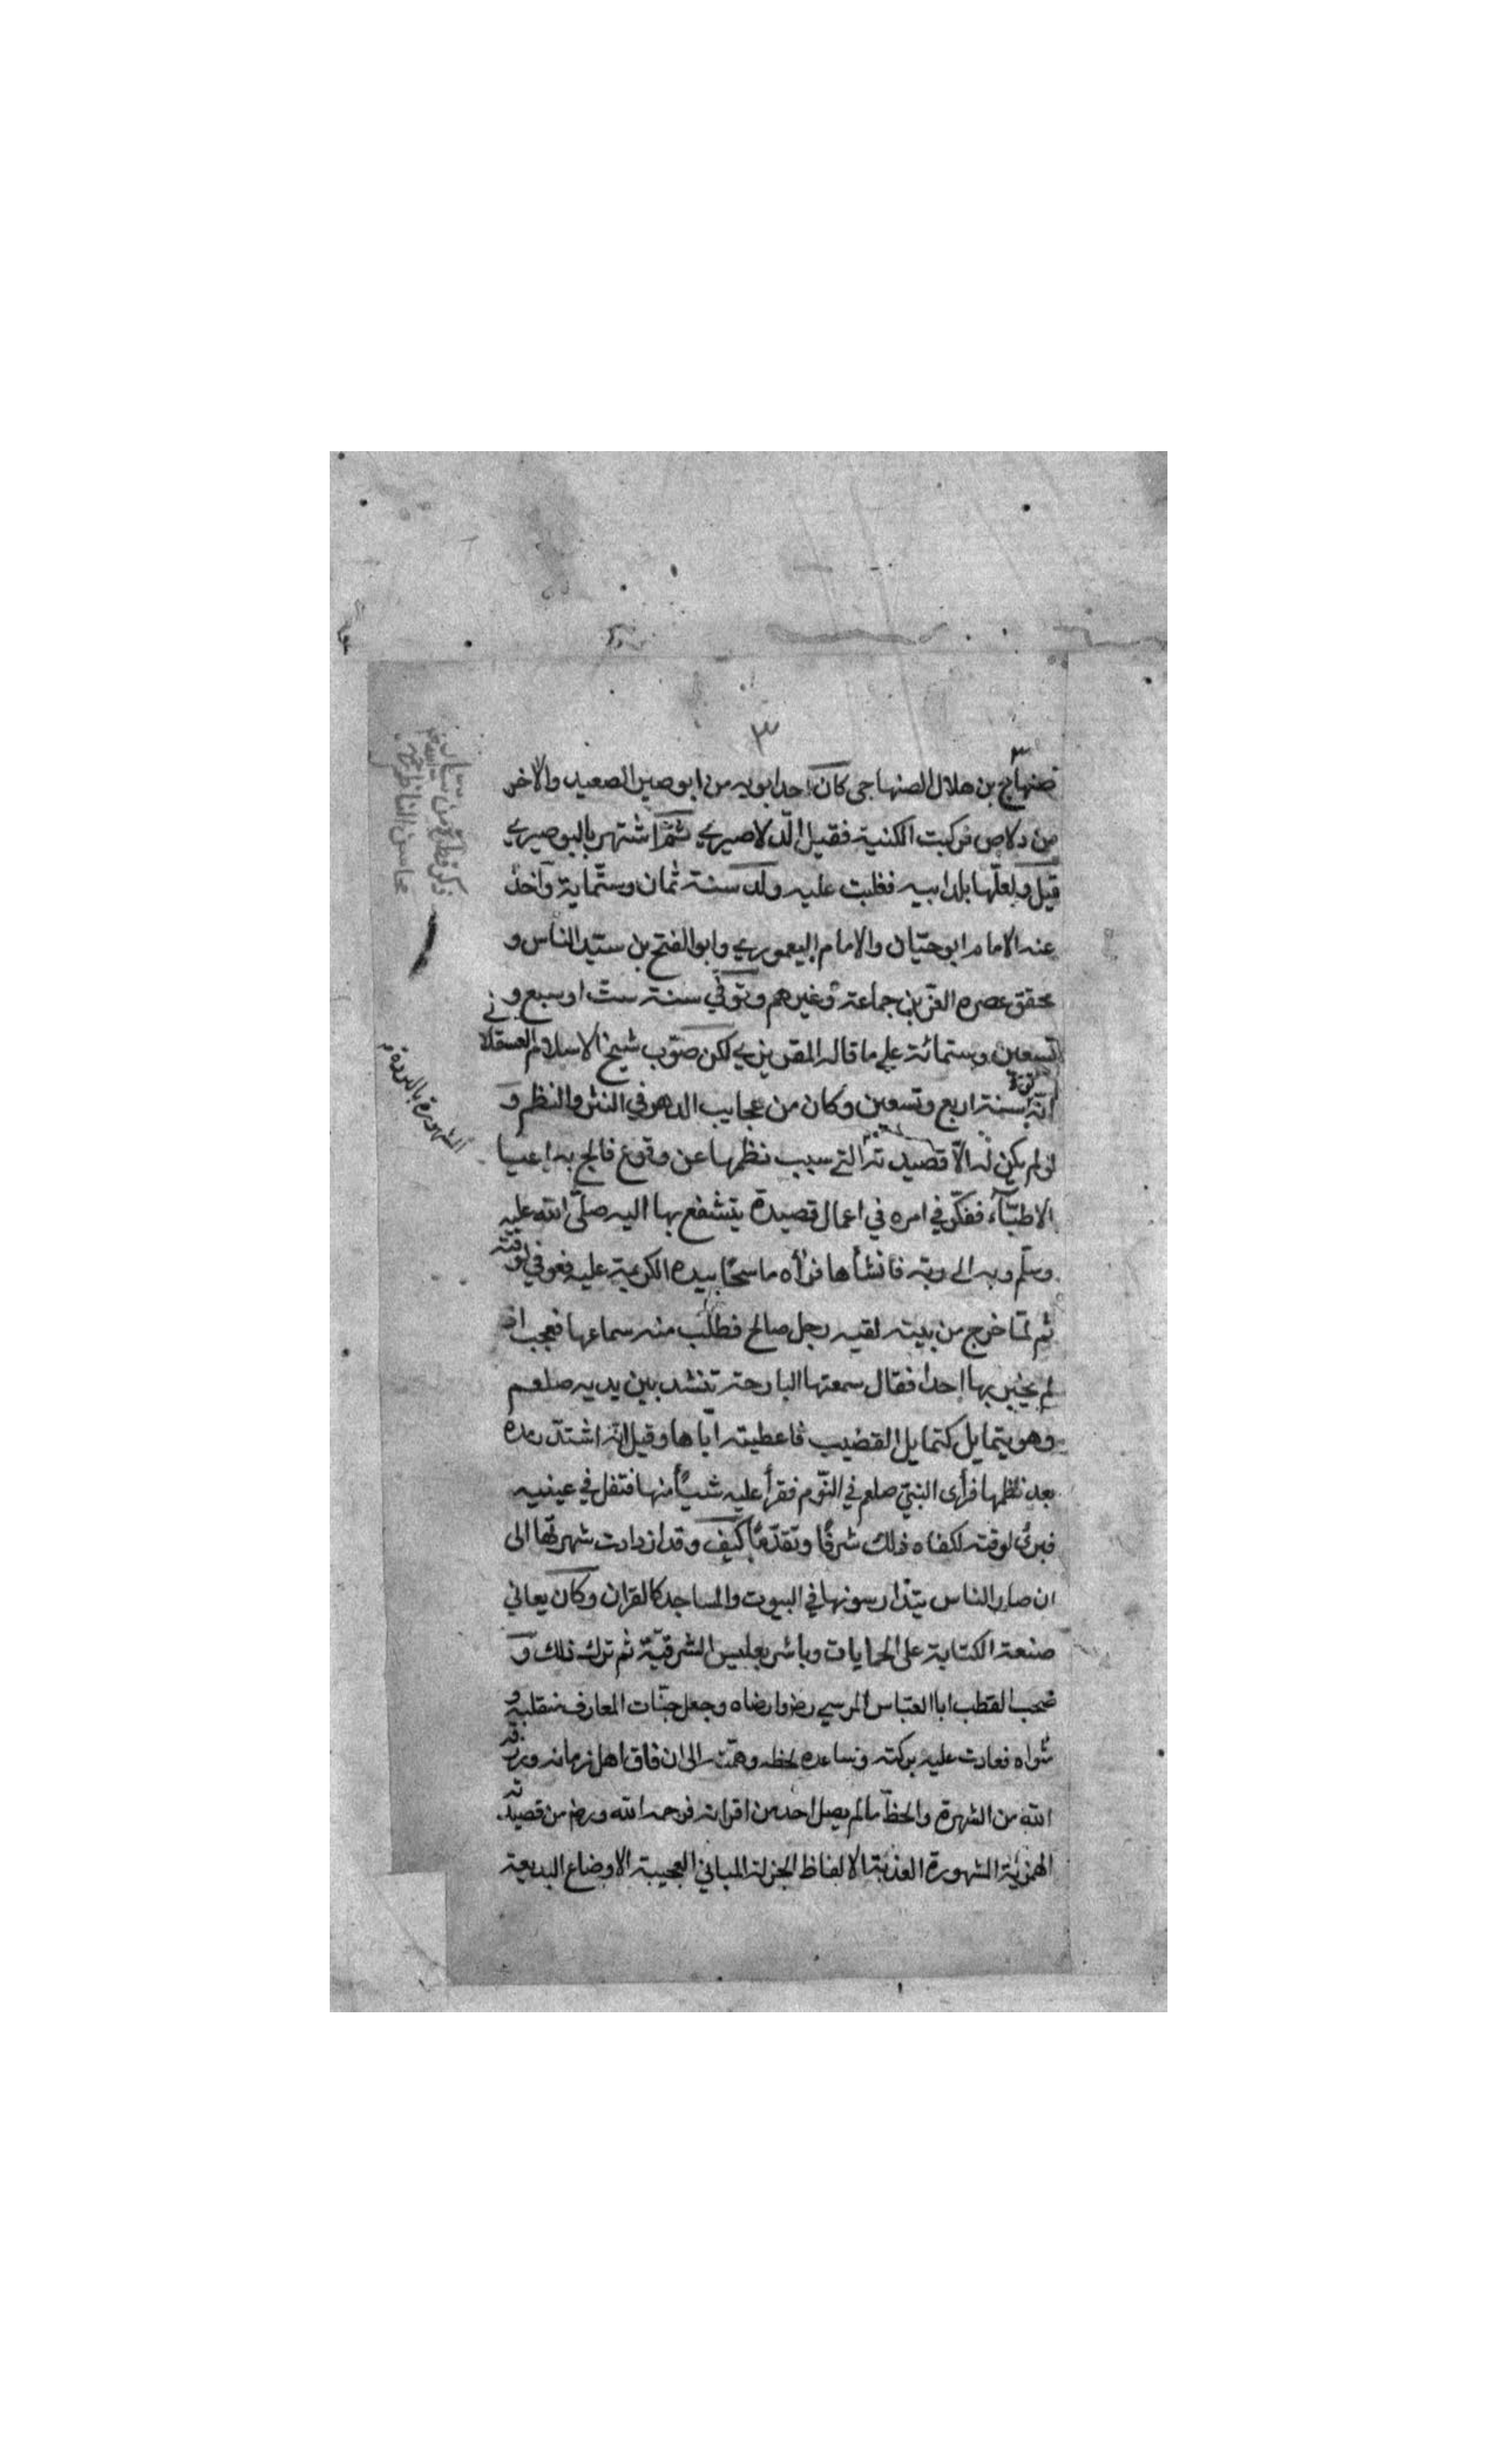 ٣
صنهاج بن هلال الصنهاجى كان احد ابويه من ابوصير الصعيد والاخر
من دلاص فركبت الكنية فقيل الدلاصيري ثم اشتهر بالبوصيري
قيل ولعلها بلد ابيه فغلبت عليه ولد سنة ثمان وستماية وآخذ
عنه الامام ابو حيان والامام اليعموري وابو الفتح بن سيد الناس و
محقق عصره العز بن جماعة وغيرهم وتوفي سنة ست او سبع و
تسعين وستمائة علي ما قاله المقريزي لكن صوب شيخ الاسلام العسقلانى
انه توفى سنة اربع وتسعين وكان من عجايب الدهر في النثر والنظم و
لو لم يكن له الا قصيدته التي سبب نظمها عن وقوع فالج به اعيا
الاطباء ففكر في امره في اعمال قصيدة يتشفع بها اليه صلى الله عليه
وسلم وبه الى ربه فانشأها فرأه ماسحا بيده الكريمة عليه فعوفي لوقته
ثم لما خرج من بيته لقيه رجل صالح فطلب منه سماعها فعجب اذ
لم يخبر بها احدا فقال سمعتها البارحة تنشد بين يديه صلعم
وهو يتمايل كتمايل القضيب فاعطيته اياها وقيل انه اشتد رمده
بعد نظمها فرأى النبي صلعم في النوم فقرأ عليه شيأ منها فتفل في عينيه
فبرئ لوقته لكفاه ذلك شرفا وتقدما كيف وقد ازدادت شهرتها الى
ان صار الناس يتدارسونها في البيوت والمساجد كالقران وكان يعاني
صنعة الكتابة على الجمايات وباشر بلبيس الشرقية ثم ترك ذلك و
صحب القطب ابا العباس المرسي رضه وارضاه وجعل جنات المعارف منقلبه و
مثواه فعادت عليه بركته وساعده لحظه وهمته الى ان فاق اهل زمانه ورزقه
الله من الشهرة والحظ ما لم يصل احد من اقرانه فرحمه الله ورضه من قصيدته
الهمزية المشهورة العذبة الالفاظ الجزلة المباني العجيبة الاوضاع البديعة
المشهورة بالبردة
ذكر قطرة من
محاسن الناظم